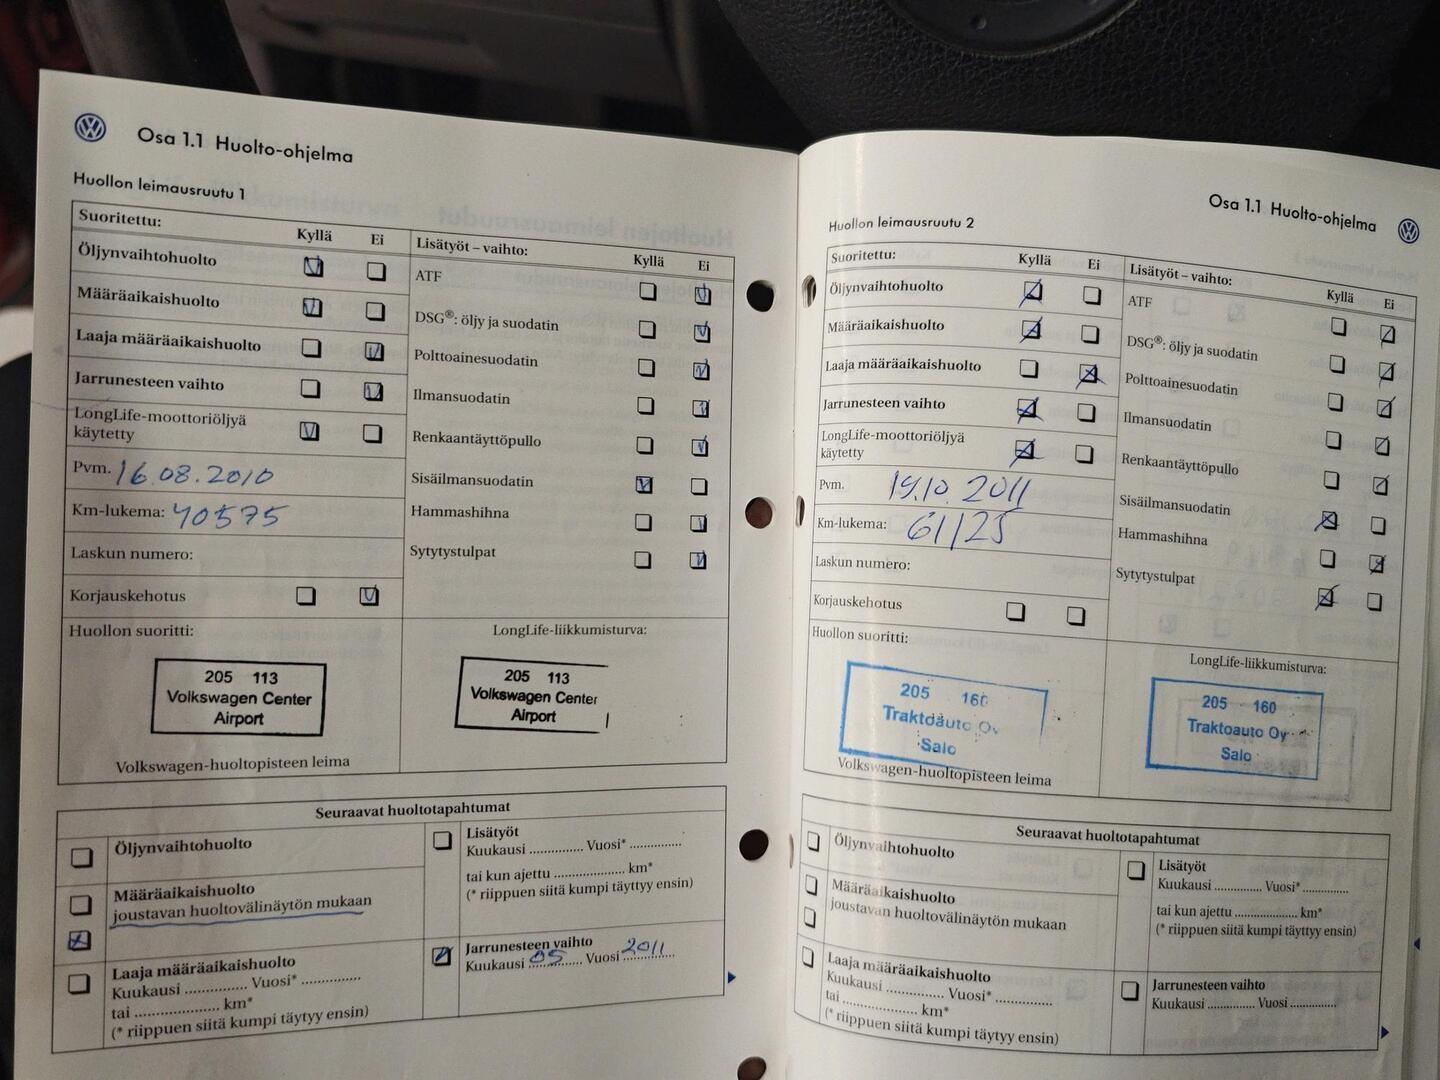 Osa 1.1 Huolto-ohjelma
Huollon leimausruutu 1
Suoritettu:
Kyllä Ei
Öljynvaihtohuolto
Määräaikaishuolto
Laaja määräaikaishuolto
Jarrunesteen vaihto
LongLife-moottoriöljyä
käytetty
Pvm. 16.08.2010
Km-lukema: 40575
Laskun numero:
Korjauskehotus
Lisätyöt – vaihto:
Kyllä Ei
ATF
DSG®: öljy ja suodatin
Polttoainesuodatin
Ilmansuodatin
Renkaantäyttöpullo
Sisäilmansuodatin
Hammashihna
Sytytystulpat
Huollon suoritti:
205 113
Volkswagen Center
Airport
Volkswagen-huoltopisteen leima
LongLife-liikkumisturva:
205 113
Volkswagen Center
Airport
Seuraavat huoltotapahtumat
Öljynvaihtohuolto
Määräaikaishuolto
joustavan huoltovälinäytön mukaan
Laaja määräaikaishuolto
Kuukausi ............... Vuosi* ...............
tai ..................... km*
(* riippuen siitä kumpi täytyy ensin)
Lisätyöt
Kuukausi ............... Vuosi* ..............
tai kun ajettu .................... km*
(* riippuen siitä kumpi täyttyy ensin)
Jarrunesteen vaihto
Kuukausi 05 Vuosi 2011
Osa 1.1 Huolto-ohjelma
Huollon leimausruutu 2
Suoritettu:
Kyllä Ei
Öljynvaihtohuolto
Määräaikaishuolto
Laaja määräaikaishuolto
Jarrunesteen vaihto
LongLife-moottoriöljyä
käytetty
Pvm. 2011
Km-lukema: 61125
Laskun numero:
Korjauskehotus
Lisätyöt – vaihto:
Kyllä Ei
ATF
DSG®: öljy ja suodatin
Polttoainesuodatin
Ilmansuodatin
Renkaantäyttöpullo
Sisäilmansuodatin
Hammashihna
Sytytystulpat
Huollon suoritti:
205 160
Traktoauto Oy
Salo
Volkswagen-huoltopisteen leima
LongLife-liikkumisturva:
205 160
Traktoauto Oy
Salo
Seuraavat huoltotapahtumat
Öljynvaihtohuolto
Määräaikaishuolto
joustavan huoltovälinäytön mukaan
Laaja määräaikaishuolto
Kuukausi ............... Vuosi* ...............
tai ................... km*
(* riippuen siitä kumpi täytyy ensin)
Lisätyöt
Kuukausi .............. Vuosi* ..............
tai kun ajettu .................. km*
(* riippuen siitä kumpi täyttyy ensin)
Jarrunesteen vaihto
Kuukausi .............. Vuosi ..............